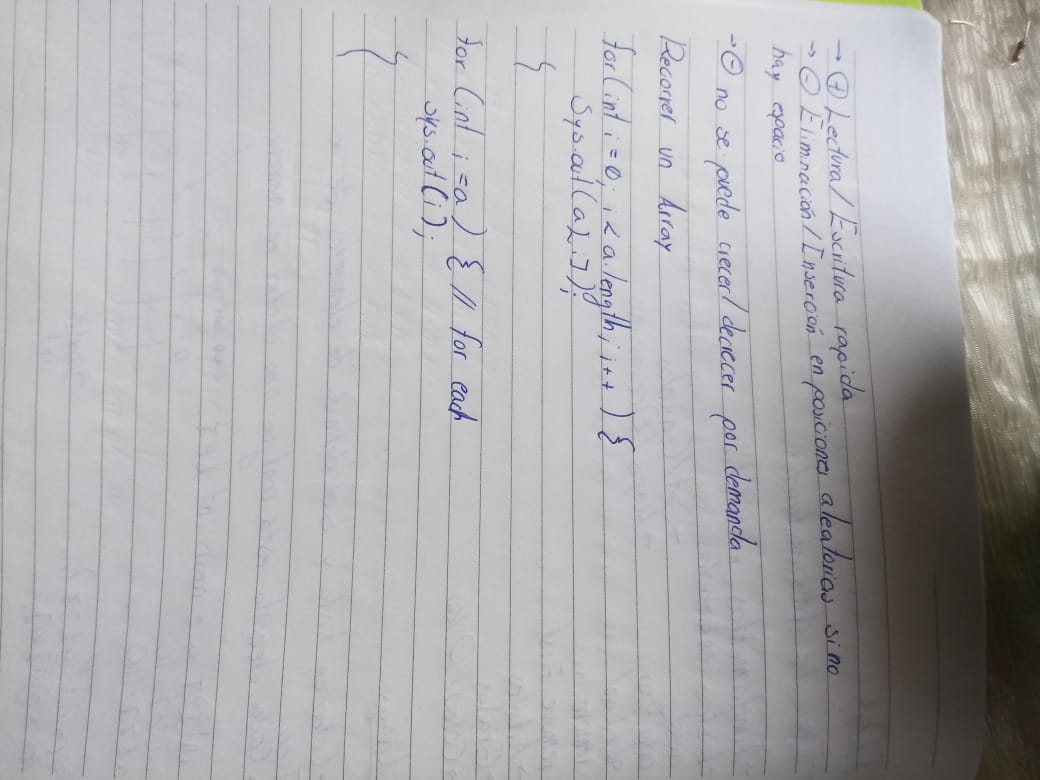 → ⊕ Lectura/Escritura rapida
→ ⊖ Eliminación/Inserción en posiciones aleatorias si no
hay espacio
→ ⊖ no se puede crecer/decrecer por demanda
Recorrer un Array
for(int i=0; i<a.length; i++) {
Sys.out(a[i]);
}
for (int i=a) { // for each
sys.out(i);
}
}